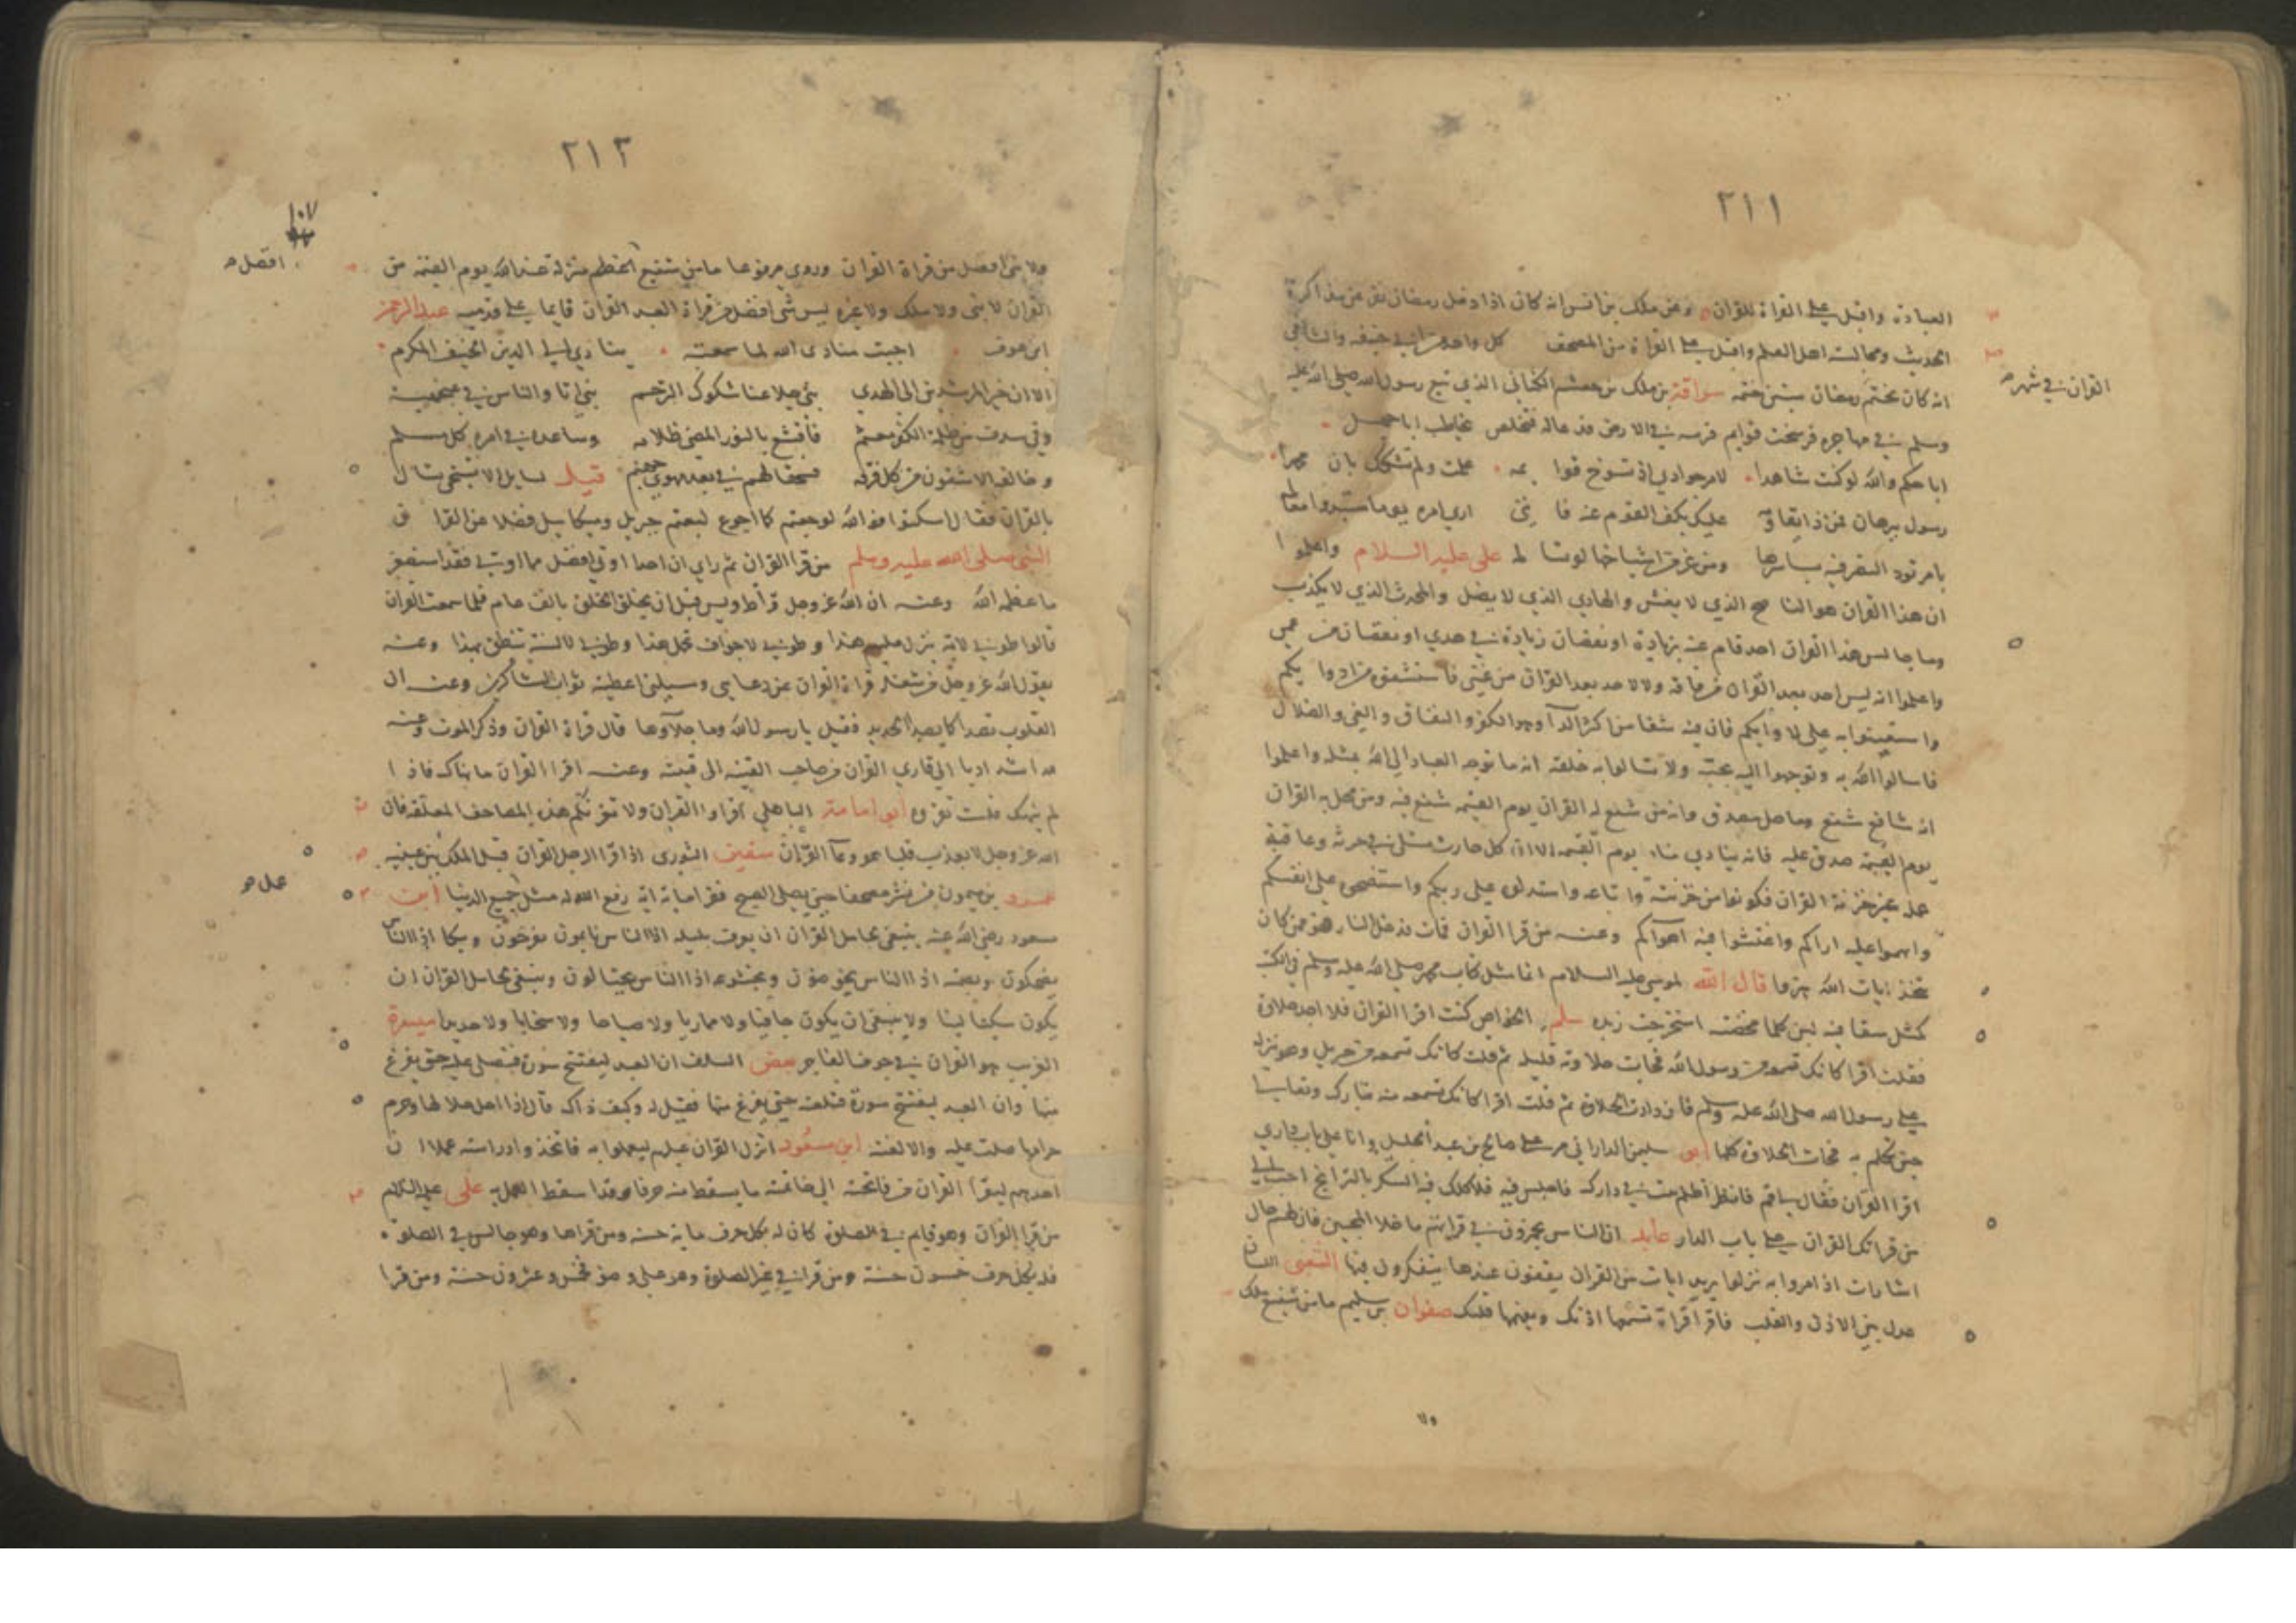 ٢١١
العبادة واقبل على القراة للقران وعن ملك بن انس انه كان اذا دخل رمضان نفر عن مذاكرة
الحديث ومجالسة اهل العلم واقبل على القراة من المصحف كل واحد من ابي حنيفه والشافعي
القران في شهر
انه كان يختم رمضان ستين ختمه سراقة بن ملك بن جعشم الكناني الذي تبع رسول الله صلى الله عليه
وسلم في مهاجره فرسخت قوايم فرسه في الارض فدعا له فتخلص يخاطب اباجهل
اباحكم والله لو كنت شاهدا لامر جوادي اذ تسوخ قوايمه علمت ولم تشكك بان محمدا
رسول ببرهان فمن ذا يقاومه عليك بكف القوم عنه فانني ارى امره يوما ستبدو امعالمه
بامر تود النصر فيه باسرها علي عليه السلام واعلموا
ان هذا القران هو الناصح الذي لا يغش والهادي الذي لا يضل والمحدث الذي لا يكذب
وما جالس هذا القران احد قام عنه بزيادة او نقصان زيادة في هدي او نقصان من عمي
واعلموا انه ليس احد بعد القران من فاقه ولا لاحد بعد القران من غني فاستشفوه من ادوايكم
واستعينوا به على لاوايكم فان فيه شفا من اكثر الدآ وهو الكفر والنفاق والغي والضلال
فاسالوا الله به وتوجهوا اليه بحبه ولا تسالوا به خلقه انه ما توجه العباد الى الله بمثله واعلموا
انه شافع مشفع وماحل مصدق وانه من شفع له القران يوم القيمه شفع فيه ومن محل به القران
يوم القيمة صدق عليه فانه ينادي مناد يوم القيمه الا ان كل حارث مبتلى في حرثه وعاقبة
عمله غير حرثة القران فكونوا من حرثته واتباعه واستدلوه على ربكم واستنصحوه على انفسكم
واتهموا عليه اراكم واغتشوا فيه اهوآكم وعنه من قرا القران فمات فدخل النار فهو ممن كان
يتخذ ايات الله هزوا قال الله لموسى عليه السلام انما مثل كتاب محمد صلى الله عليه وسلم في الكتب
كمثل سقا فيه لبن كلما مخضته استخرجت زبده سلم الخواص كنت اقرا القران فلا اجد حلاوة
فقلت اقرا كانك تسمعه من رسول الله فجات حلاوته قليله ثم قلت كانك تسمعه من جبريل وهو ينزله
على رسول الله صلى الله عليه وسلم فازدادت الحلاوة ثم قلت اقرا كانك تسمعه منه تبارك وتعالى
حين تكلم به فجات الحلاوة كلها ابو سليمن الداراني مر على صالح بن عبد الجليل وانا على باب داري
اقرا القران فقال يا قم فانظر اظلم بيت في دارك فاجلس فيه
من قراتك القران على باب الدار عابد ان الناس يجمزون في قراتهم ما خلا المحبين فان لهم خان
اشارات اذا مروا به نزلوا يريد ايات من القران يقفون عندها يتفكرون فيها الشعبي اللسان
عدل بين الاذن والقلب فاقرا قراة تسمعها اذنك ويعيها قلبك صفوان بن سليم ما من شفيع ملك
ولا
٢١٣
١٠٧
ولا شي افضل من قراة القران وروي مرفوعا ما من شفيع اعظم منزلة عند الله يوم القيمه من
افضل
القران لا نبي ولا ملك ولا غيره ليس شي افضل من قراة العبد القران قايما على قدميه عبد الرحمن
ابن عوف اجبت منادى الله لما سمعته ينادي الى الدين الحنيف المكرم
الا ان خير المرشدين الى الهدي نبي جلا عنا شكوك الترجم نبي اتا والناس في عنجهية
وفي سدف من ظلمة الكفر معتم فاقشع بالنور المضي ظلامه وساعده في امره كل مسلم
وخالفه الاشقون من كل فرقه فسحقا لهم في بعد مهوي جهنم قيل لسايل الا تستحي تسال
بالقران فقال اسكتوا فوالله لو جعتم كما اجوع لبعتم جبريل وميكاييل فضلا عن القران
النبي صلى الله عليه وسلم من قرا القران ثم راي ان احدا اوتي افضل مما اوتي فقد استصغر
ما عظمه الله وعنه ان الله عز وجل قرأ طه ويس قبل ان يخلق الخلق بالف عام فلما سمعت القران
قالوا طوبى لامة ينزل عليهم هذا وطوبى لاجواف تحمل هذا وطوبى لالسنة تنطق بهذا وعنه
يقول الله عز وجل من شغله قراة القران عن دعايي ومسيلتي اعطيته ثواب الشاكرين وعنه ان
القلوب تصدا كما يصدا الحديد فقيل يا رسول الله وما جلآوها قال قراة القران وذكر الموت وعنه
لله اشد اذنا الى قاري القران من صاحب القينة الى قينته وعنه اقرا القران ما نهاك فاذا
لم ينهك فلست تقروه ابو امامة الباهلي اقراوا القران ولا تغرنكم هذه المصاحف المعلقه فان
الله عز وجل لا يعذب قلبا هو وعآ القرآن سفين الثوري اذا قرا الرجل القران قبل الملك بين عينيه
عمل
عمرو بن ميمون من نشر مصحفا حين يصلي الصبح فقرا مايه ايه رفع الله له مثل جميع الدنيا ابن
مسعود رضي الله عنه ينبغي لحامل القران ان يعرف بليله اذا الناس نايمون وبكايه اذا الناس
يضحكون وبصمته اذا الناس يخوضون وبخشوعه اذا الناس يختالون وينبغي لحامل القران ان
يكون سكيتا لينا ولا ينبغي ان يكون جافيا ولا مماريا ولا صياحا ولا سخابا ولا حديدا ميسرة
الغريب هو القران في جوف الفاجر بعض السلف ان العبد ليفتتح سورة فتصلي عليه حتى يفرغ
منها وان العبد ليفتتح سورة فتلعنه حتى يفرغ منها فقيل له وكيف ذاك قال اذا احل حلالها وحرم
حرامها صلت عليه والا لعنته ابن مسعود انزل القران عليهم ليعملوا به فاتخذوا دراسته عملا ان
احدهم ليقرا القران من فاتحته الى خاتمته ما يسقط منه حرفا وقد اسقط العمل به علي عليه السلام
من قرا القران وهو قايم في الصلوة كان له بكل حرف ماية حسنه ومن قراها وهو جالس في الصلوة
فله بكل حرف خمسون حسنة ومن قرا في غير الصلوة وهو على وضو فخمس وعشرون حسنة ومن قرا